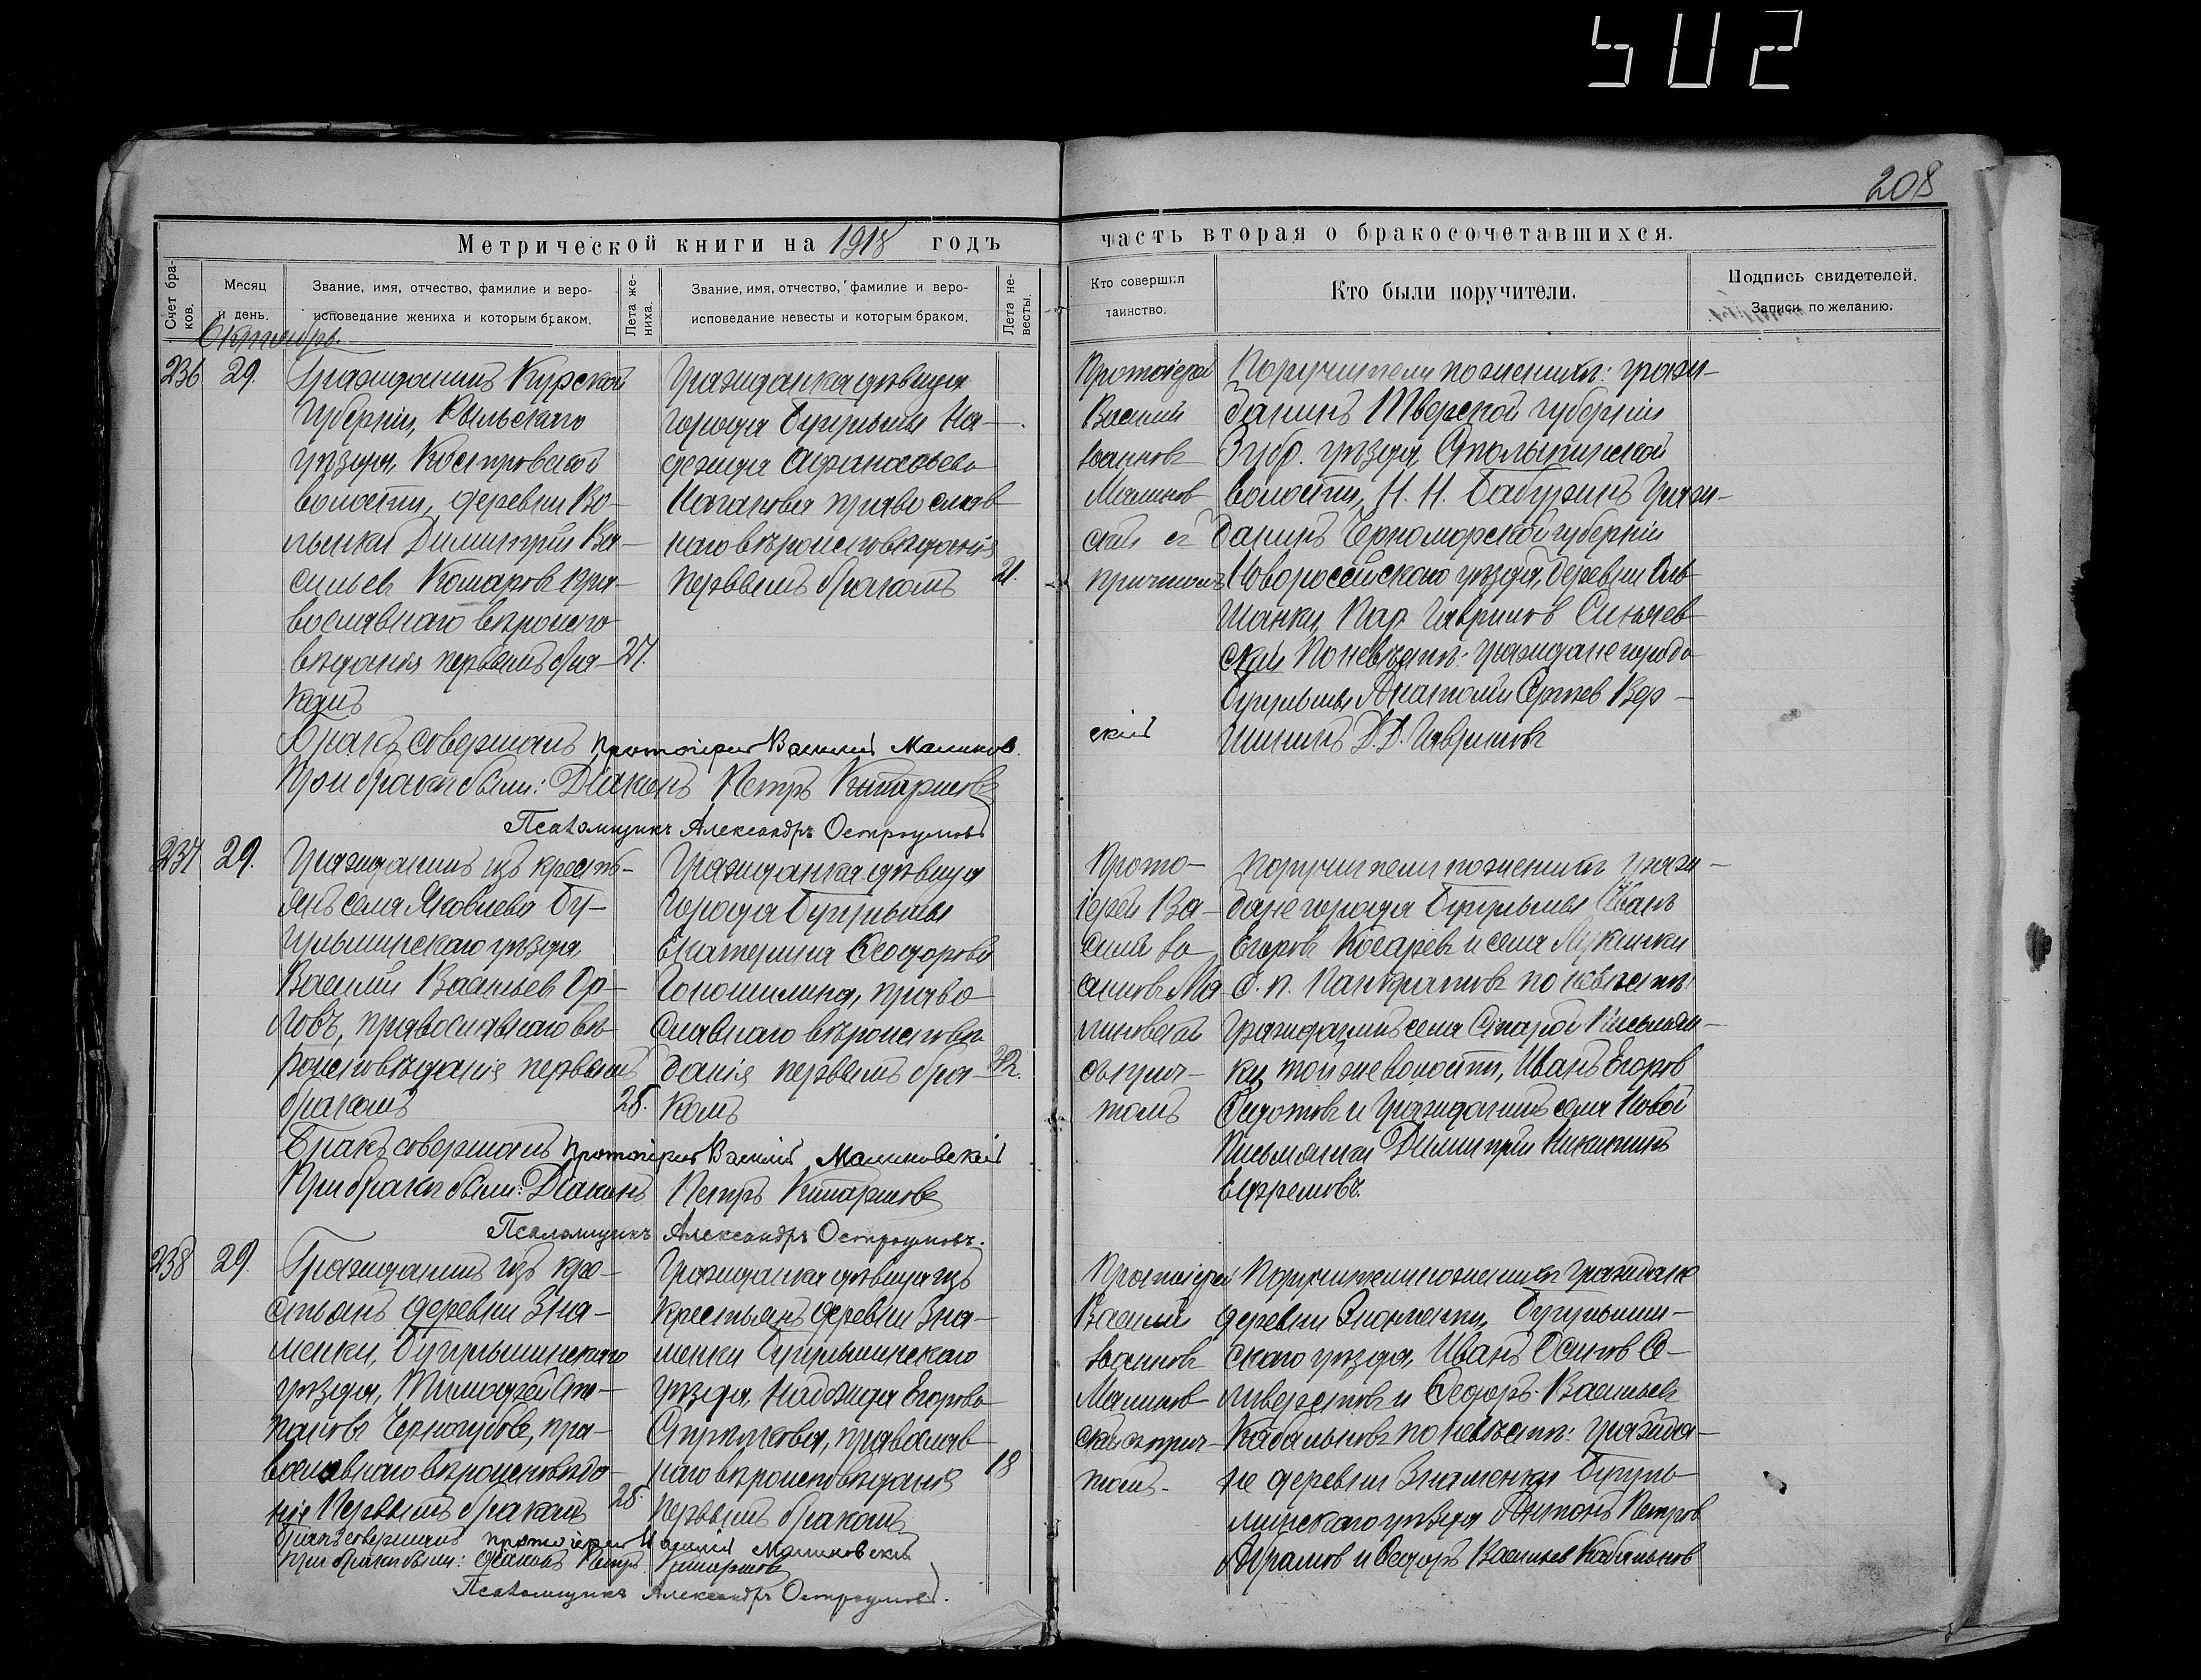 502
208
Метрической книги на 1918 годъ
часть вторая о бракосочетавшихся.
Счет браков.
Месяц и день.
Звание, имя, отчество, фамилие и вероисповедание жениха и которым браком.
Лета жениха.
Звание, имя, отчество, фамилие и вероисповедание невесты и которым браком.
Лета невесты.
Кто совершил таинство.
Кто были поручители.
Подпись свидетелей.
Записи по желанию.
Октябрь.
236 29.
Гражданинъ Курской
Губерніи, Рыльскаго
уѣзда,
волости, деревни Во-
льнки Димитрій Ва-
сильев Комаров пра-
вославнаго вѣроиспо-
вѣданія первымъ бра-
комъ
27.
Гражданка дѣвица
города Бугульмы На-
дежда Афанасьева
православ-
наго вѣроисповѣданія
первымъ бракомъ
21.
Протоіерей
Василій
Іоаннов
Малинов
скій съ
причтомъ
Поручители по женихѣ: граж-
данинъ Тверской губерніи
Зубр. уѣзда, Столыпинской
волости, Н. Н. Бабурин Граж-
данинъ Черноморской губерніи
Новороссійскаго уѣзда, деревни
Гаврилов
По невѣстѣ: граждане города
Бугульмы Анатолій Сергѣев Вер-
шинин Д. Д. Гаврилов
Бракъ совершалъ Протоіерей Василій Малинов
скій
При бракѣ были: Діаконъ Петръ Кипарисов
Псаломщикъ Александръ Остроумовъ
237 29.
Гражданинъ изъ кресть-
янъ села Яковлева Бу-
гульминскаго уѣзда,
Василій Васильев Ор-
ловъ, православнаго вѣ-
роисповѣданія первымъ
бракомъ
28.
Гражданка дѣвица
города Бугульмы
Екатерина Ѳеодорова
православ-
славнаго вѣроисповѣ-
данія первымъ бра-
комъ
22.
Прото-
іерей Ва-
силій Іо
аннов Ма
линовскій
съ прич-
томъ
Поручители по женихѣ граж-
дане города Бугульмы Иванъ
Егоров Косарев и села
С. П. Панкратов по невѣстѣ
Гражданинъ села Старой Письмян-
ки той же волости, Иванъ Егоров
Ѳедотов и Гражданинъ села Новой
Письмянки Димитрій Никитин
Ефремовъ.
Бракъ совершалъ Протоіерей Василій Малиновскій
При бракѣ были: Діаконъ Петръ Кипарисов
Псаломщикъ Александръ Остроумовъ.
238 29
Гражданинъ изъ кре-
стьянъ деревни Зна-
менки, Бугульминскаго
уѣзда, Тимофей Сте-
панов Черногубов, пра-
вославнаго вѣроисповѣда-
нія Первымъ бракомъ
28.
Гражданка дѣвица изъ
крестьянъ деревни Зна-
менки Бугульминскаго
уѣзда, Надежда Егорова
православ-
наго вѣроисповѣданія
первымъ бракомъ
18
Протоіерей
Василій
Іоаннов
Малинов
скій съ прич-
томъ.
Поручители по женихѣ Граждане
деревни Знаменки, Бугульмин-
скаго уѣзда, Иванъ Осипов Се-
ливерстов и Ѳеодоръ Васильев
Кабальнов по невѣстѣ: гражда-
не деревни Знаменки Бугуль-
минскаго уѣзда Антонъ Петров
Абрамов и Ѳеодоръ Васильев Кабальнов
Бракъ совершалъ Протоіерей Василій Малиновскій
При бракѣ были: діаконъ Петръ Кипарисов
Псаломщикъ Александръ Остроумовъ.